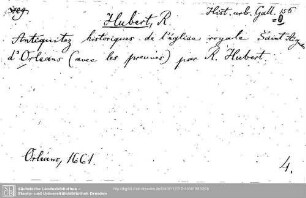 Hubert, R
Hist. urb. Gall. 156
Antiquitez historiques de l'église royale Saint
d'Orleans (avec les preuves) par R. Hubert.
Orleans, 1661.
4.
Sächsische Landesbibliothek -
Staats- und Universitätsbibliothek Dresden